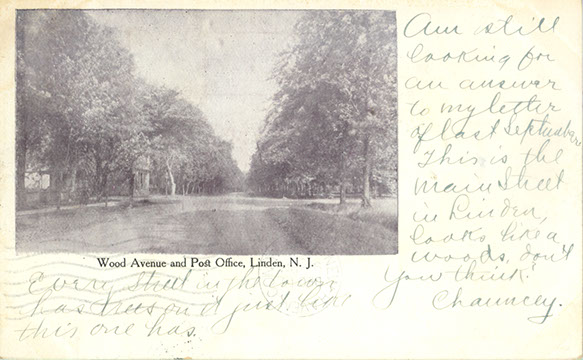 Am still
looking for
an answer
to my letter
of last September
This is the
main Street
in Linden,
looks like a
woods, don't
You think!
Chauncey.
Wood Avenue and Post Office, Linden, N. J.
Every Street in the town
has trees on it just like
this one has.